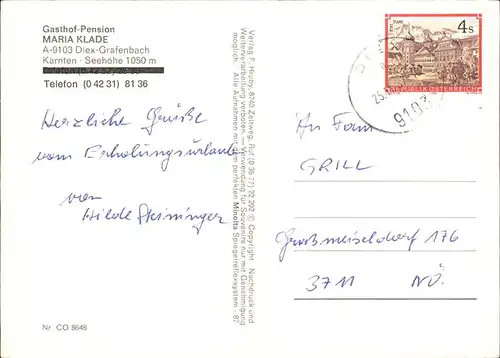 Gasthof-Pension
MARIA KLADE
A-9103 Diex-Grafenbach
Kärnten · Seehöhe 1050 m
Telefon (0 42 31) 81 36
Herzliche Grüße
vom Erholungsurlaub
von
Hilde Steininger
Nr. CO 8648
Verlag F. Hruby, 8740 Zeltweg, Ruf (0 35 77) 22 292 © Copyright · Nachdruck und
Weiterverarbeitung verboten. — Verwendung für Souvenirs nur mit Genehmigung
möglich. · Alle Aufnahmen mit dem perfekten Minolta Spiegelreflexsystem - 87
STIFT STAMS
4 S
REPUBLIK ÖSTERREICH
9103
An Fam
GRILL
Großmeiseldorf 176
3711 NÖ.